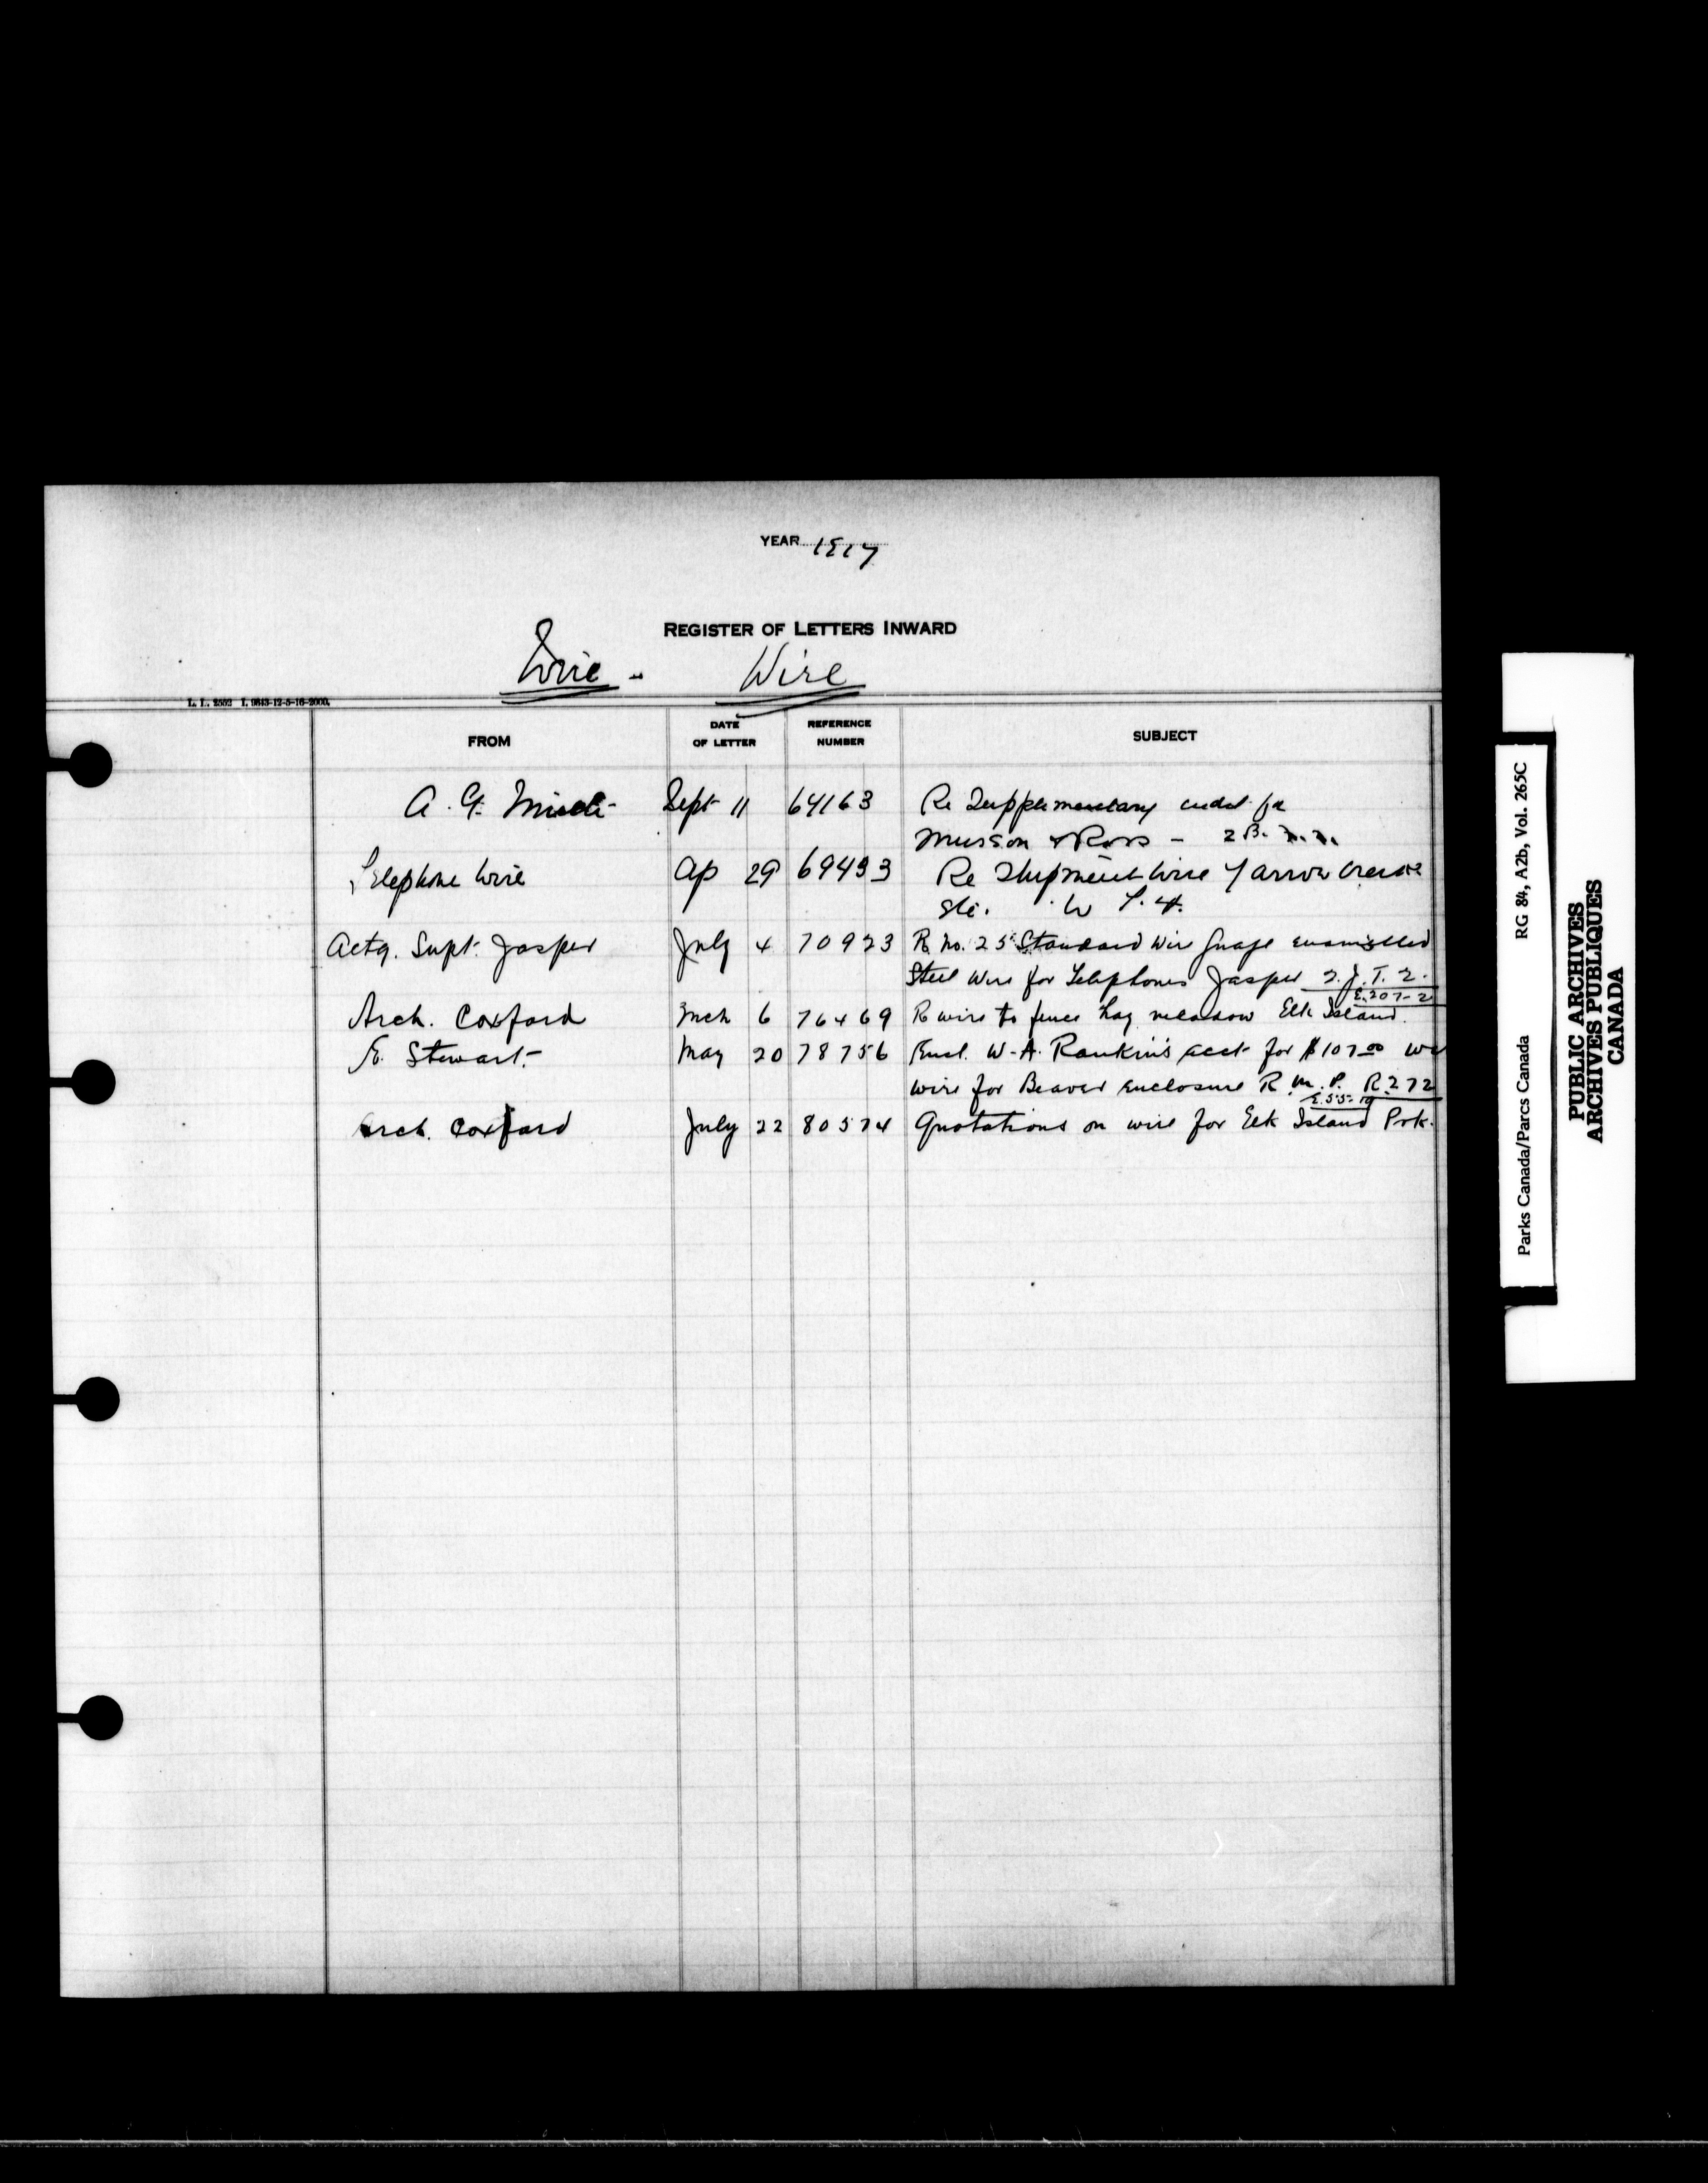 YEAR 1917
REGISTER OF LETTERS INWARD
Wire - Wire
L. L. 2552 I. 9843-12-5-16-2000.
FROM DATE OF LETTER REFERENCE NUMBER SUBJECT
A. G. Sept 11 64163 Re Supplementary
Musson & Ross - 2 B.
Telephone Wire Ap 29 69493 Re Shipment wire Yarrow Creek
W
Actg. Supt. Jasper July 4 70923 R No. 25 Standard Wire Guage Enamelled
Steel Wire for Telephones Jasper 2. J. T. 2.
E.207-2
Arch. Coxford Mch 6 76469 R wire to fence hay meadow Elk Island.
E. Stewart. May 20 78756 Encl. W. A. Rankin's acct for $107.00 wov
wire for Beaver Enclosure R. M. P. R.272
E.55-19
Arch. Coxford July 22 80574 Quotations on wire for Elk Island Prk.
Parks Canada/Parcs Canada RG 84, A2b, Vol. 265C
PUBLIC ARCHIVES
ARCHIVES PUBLIQUES
CANADA